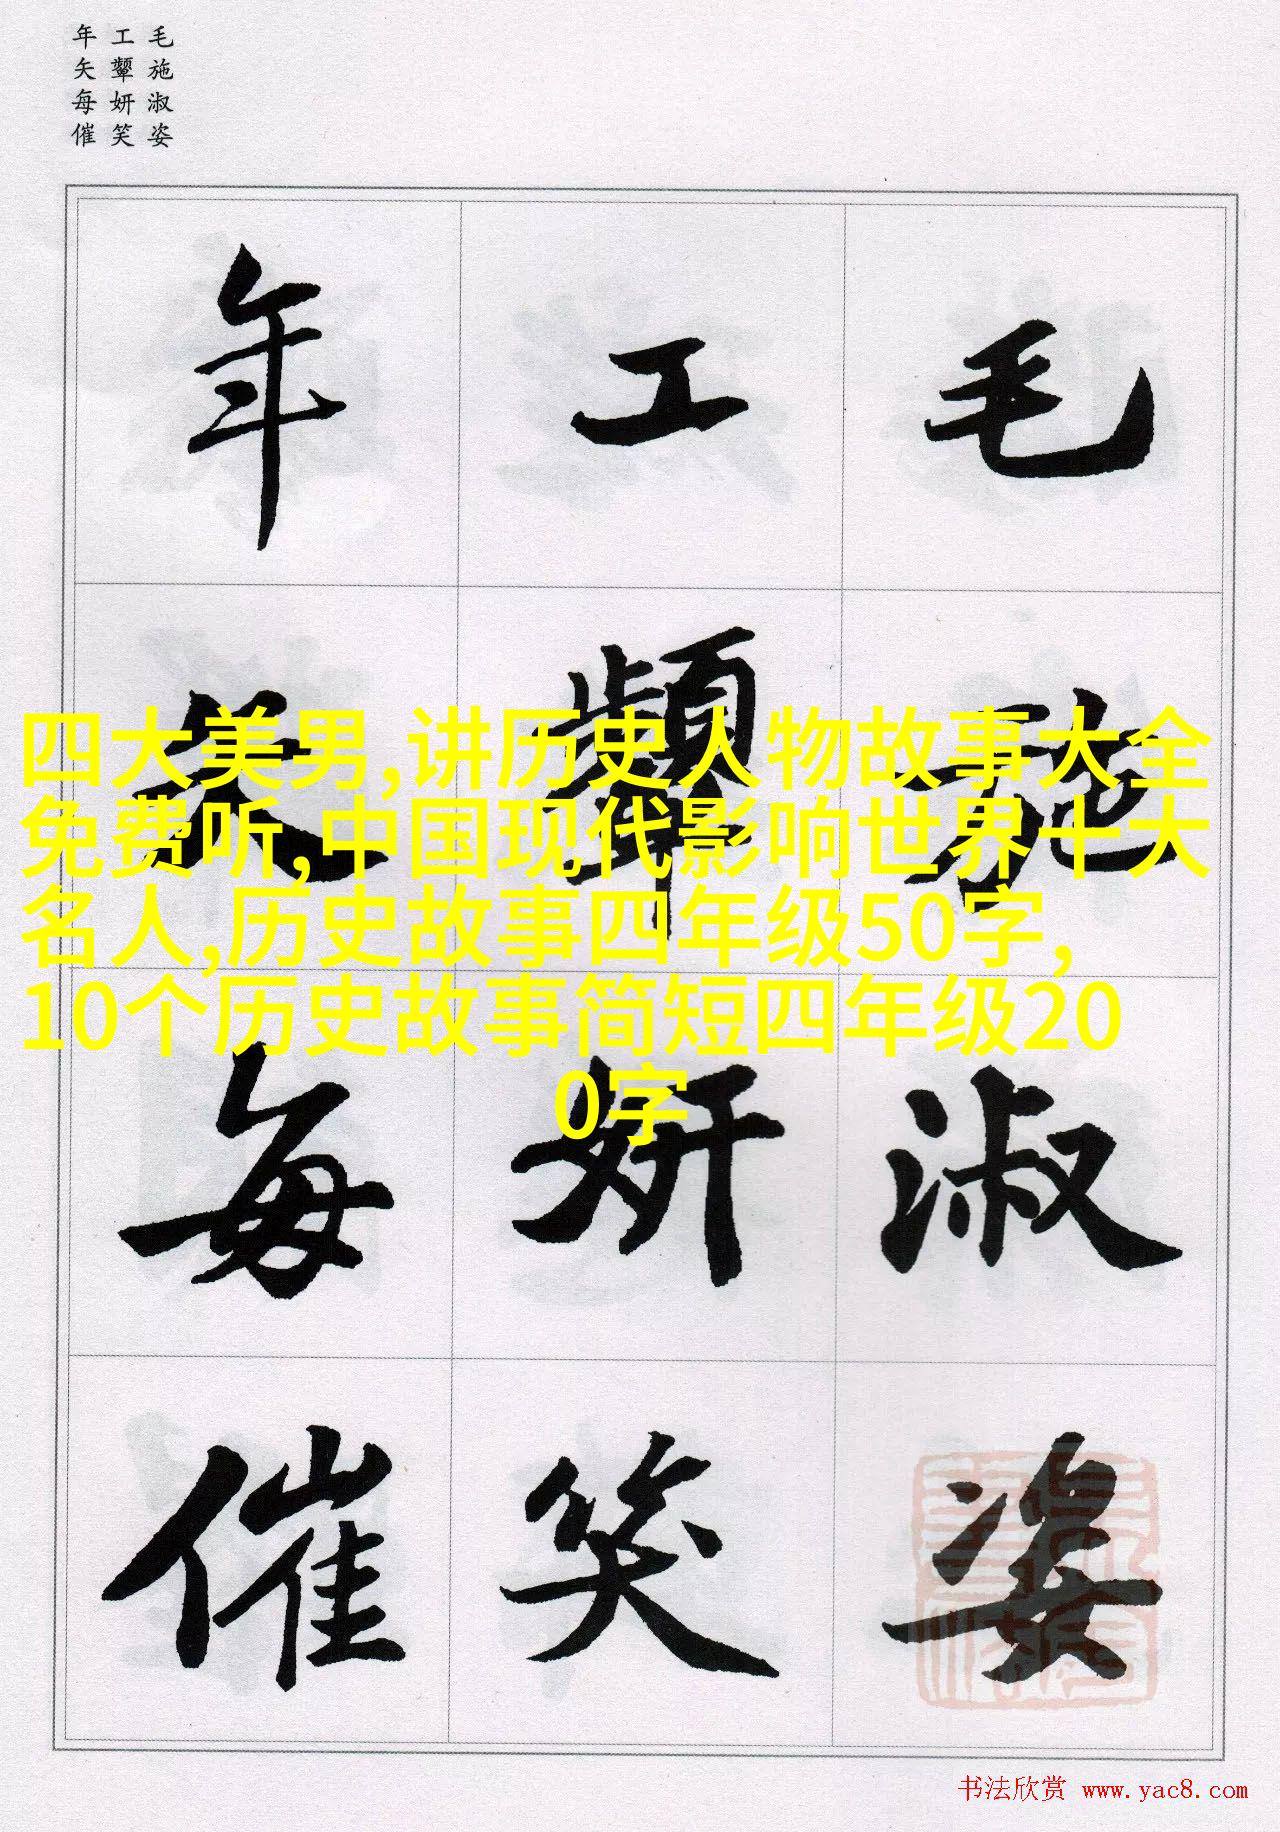 毛施淑姿
工颦妍笑
年矢每催
毛施淑姿
工顰妍笑
年矢每催
四大美男,讲历史人物故事大全
免费听,中国现代影响世界十大
名人,历史故事四年级50字,
10个历史故事简短四年级20
0字
书法欣赏 www.yac8.com